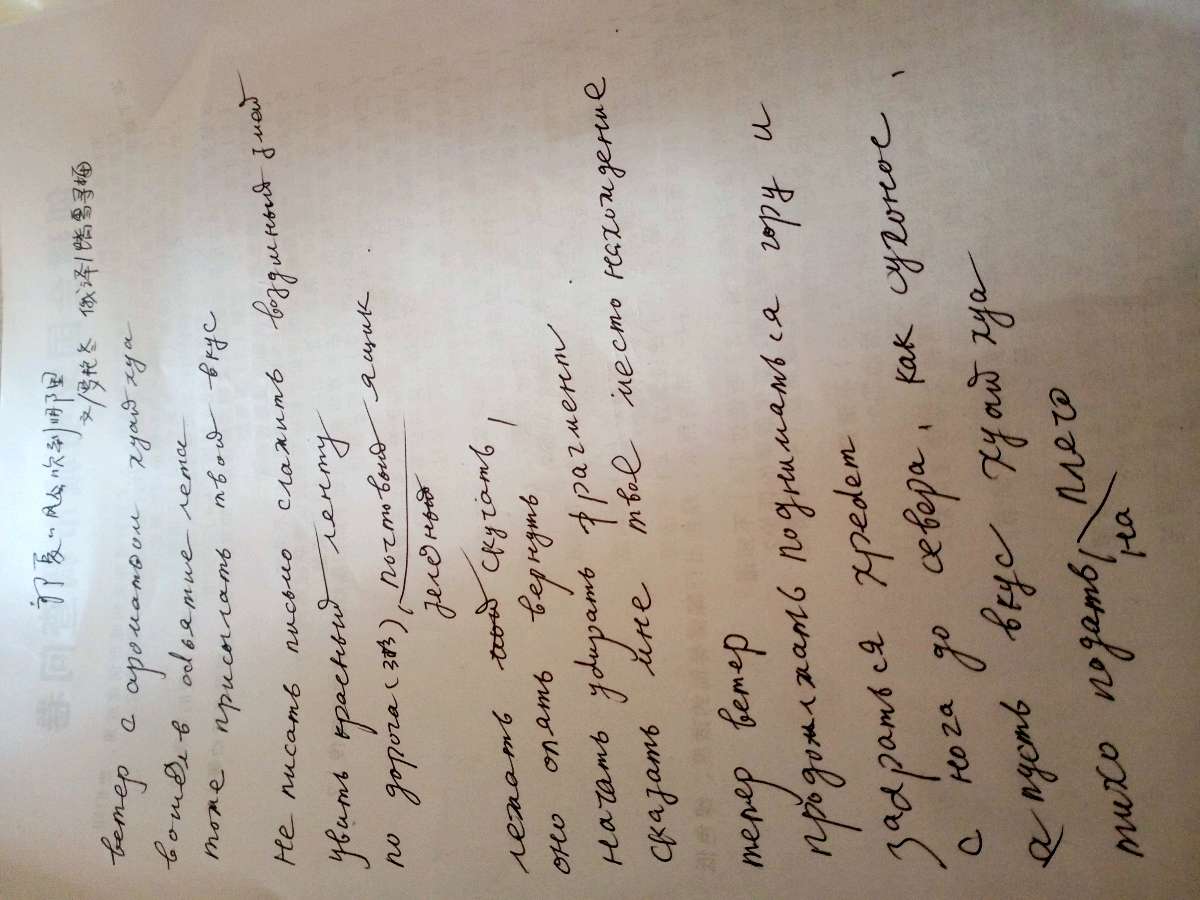 那夏の风吹到哪里
文/冯艳冬 俄译/踏雪寻梅
ветер с ароматом хуайхуа
вошёл в объятие лета
тоже присылать твой вкус
не писать письмо сложить воздушный змей
увить красный ленту
по дорога(зов), почтовый ящик
зелёный
лежать скучать,
оно опять вернуть
начать убирать фрагмент
сказать мне твое место нахождение
тепер ветер
продолжать подниматься гору и
забраться хребет
с нога до севера, как сухонос,
а пусть вкус хуайхуа
тихо подать плечо
на